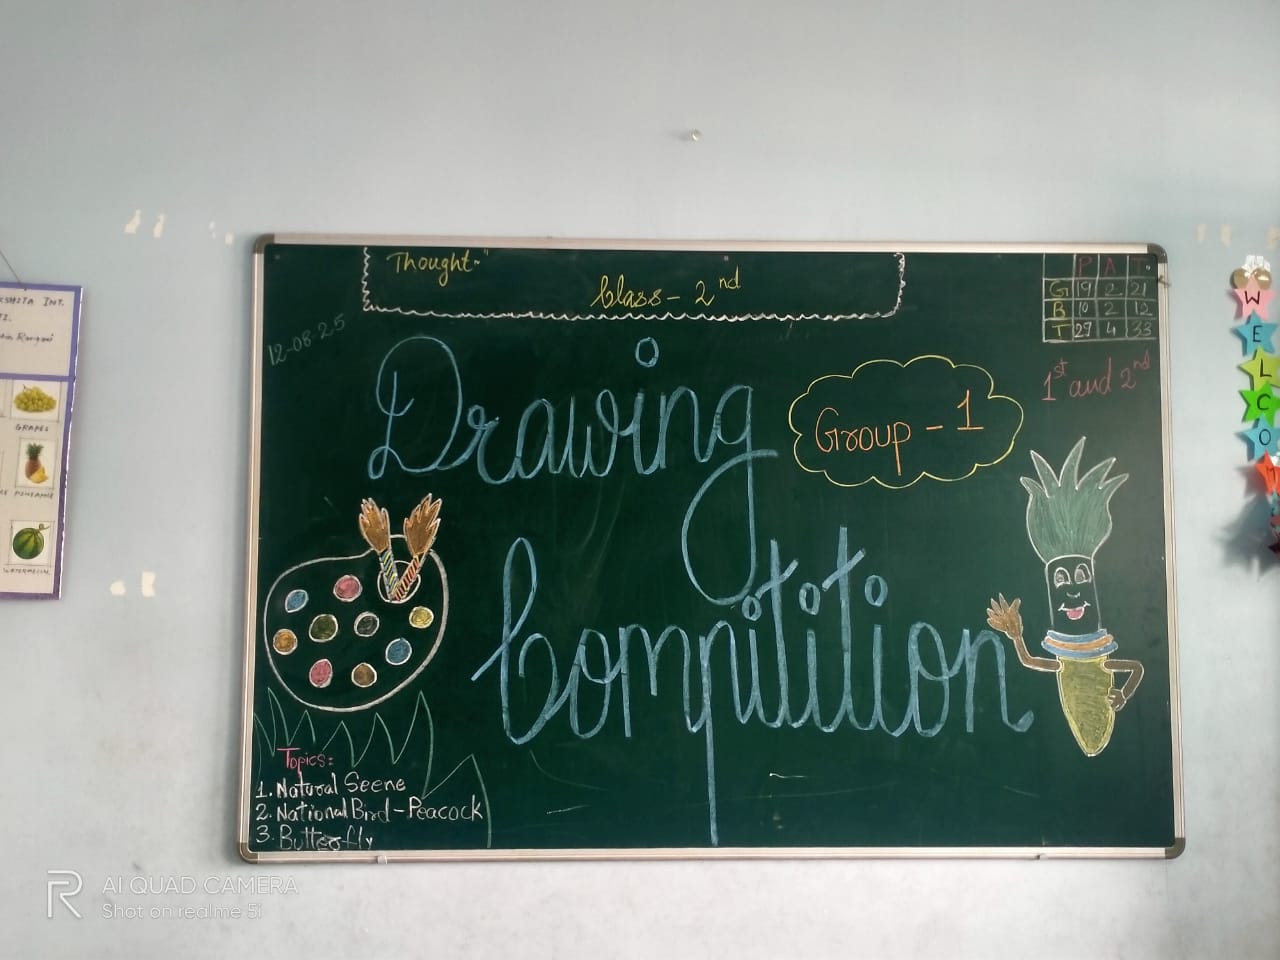 Thought-"
Class - 2nd
12-08-25
P A T
G 19 2 21
B 10 2 12
T 29 4 33
1st and 2nd
Drawing
Group - 1
Compitition
Topics:
1. Natural Seene
2. National Bird - Peacock
3. Butterfly
INT.
GRAPES
PINEAPPLE
WATERMELON
W
E
L
C
O
M
AI QUAD CAMERA
Shot on realme 5i